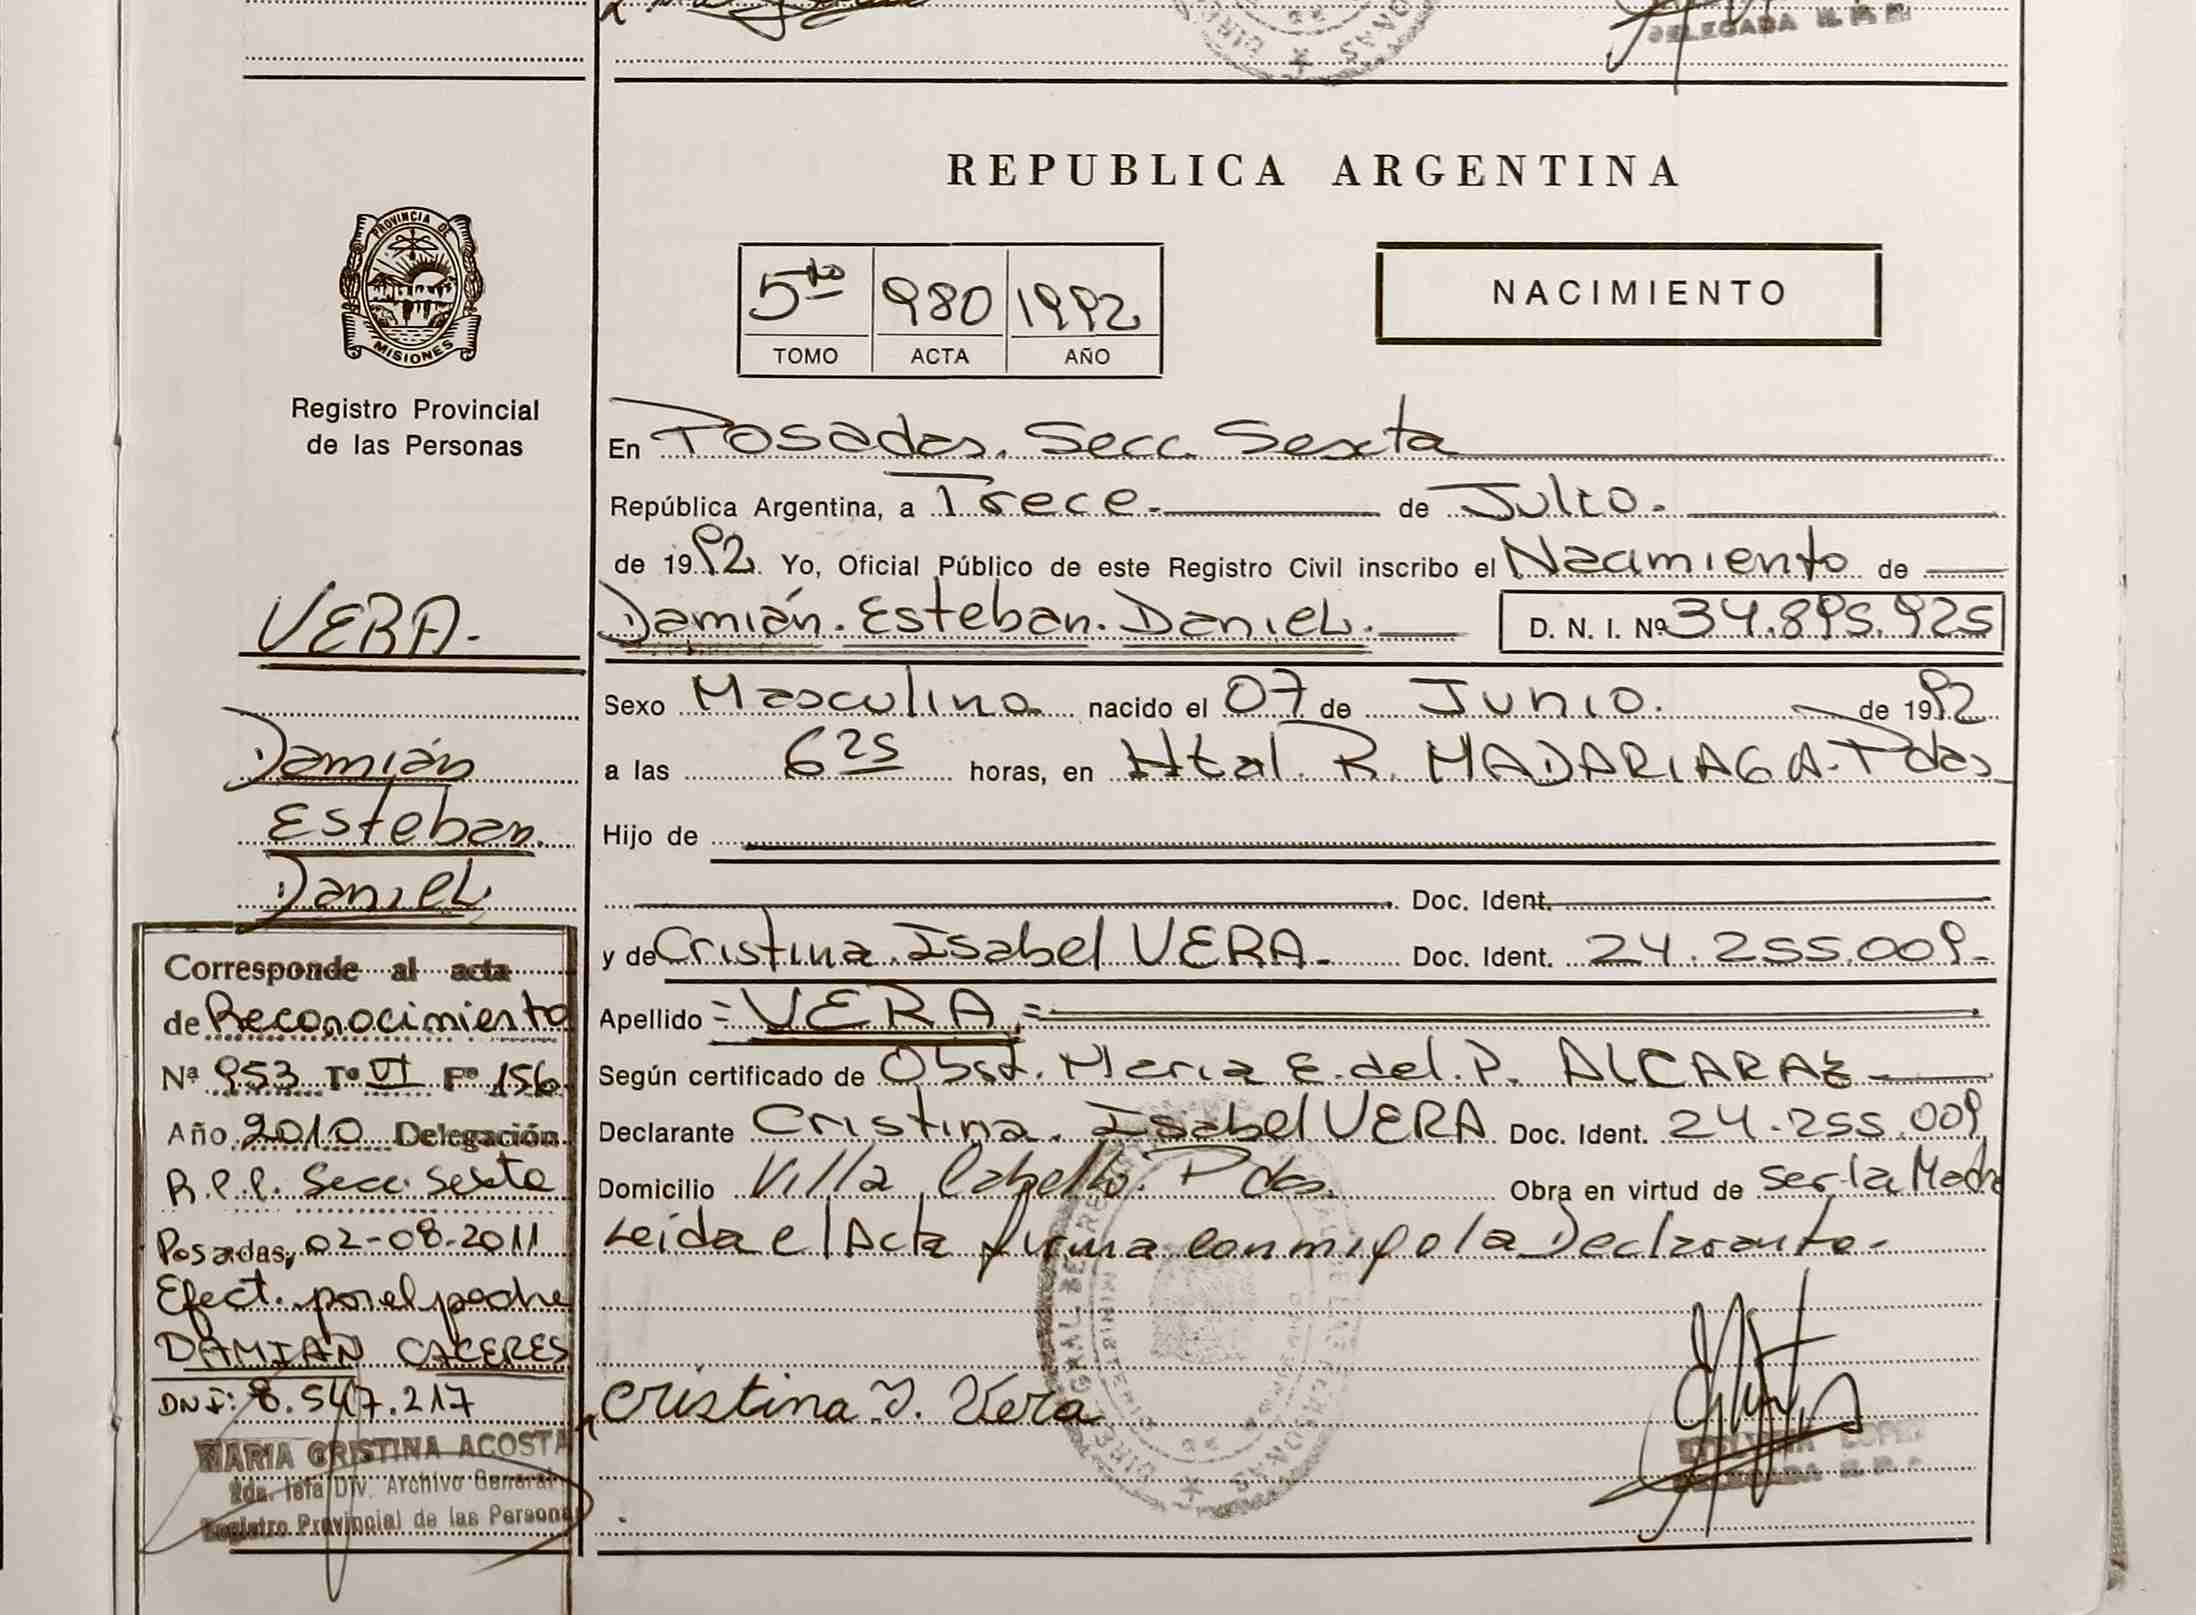 DELEGADA
REPUBLICA ARGENTINA
PROVINCIA DE
MISIONES
Registro Provincial
de las Personas
5to 980 1992
TOMO ACTA AÑO
NACIMIENTO
En Posadas. Secc. Sexta
República Argentina, a Trece.- de Julio.
de 1992. Yo, Oficial Público de este Registro Civil inscribo el Nacimiento de
Damián. Esteban. Daniel. D. N. I. Nº 34.895.925
Sexo Masculino nacido el 07 de Junio. de 1992
a las 6 25 horas, en Htal. R. MADARIAGA. Pdas
Hijo de
Doc. Ident.
y de Cristina. Isabel VERA.- Doc. Ident. 24.255.009.-
Apellido = VERA =
Según certificado de Obst. Maria E. del. P. ALCARAZ
Declarante Cristina. Isabel VERA Doc. Ident. 24.255.009
Domicilio Villa Cabello. Pdas. Obra en virtud de ser la Madre
Leida el Acta firma conmigo la Declarante.-
Cristina I. Vera
VERA.-
Damián
Esteban.
Daniel
Corresponde al acta
de Reconocimiento
Nª 953 Tº VI Fº 156
Año 2010 Delegación
R.P.P. Secc. Sexta
Posadas, 02-08-2011
Efect. por el padre
DAMIAN CACERES
DNI: 8.547.217
MARIA CRISTINA ACOSTA
2da. Jefa Div. Archivo General
Registro Provincial de las Personas